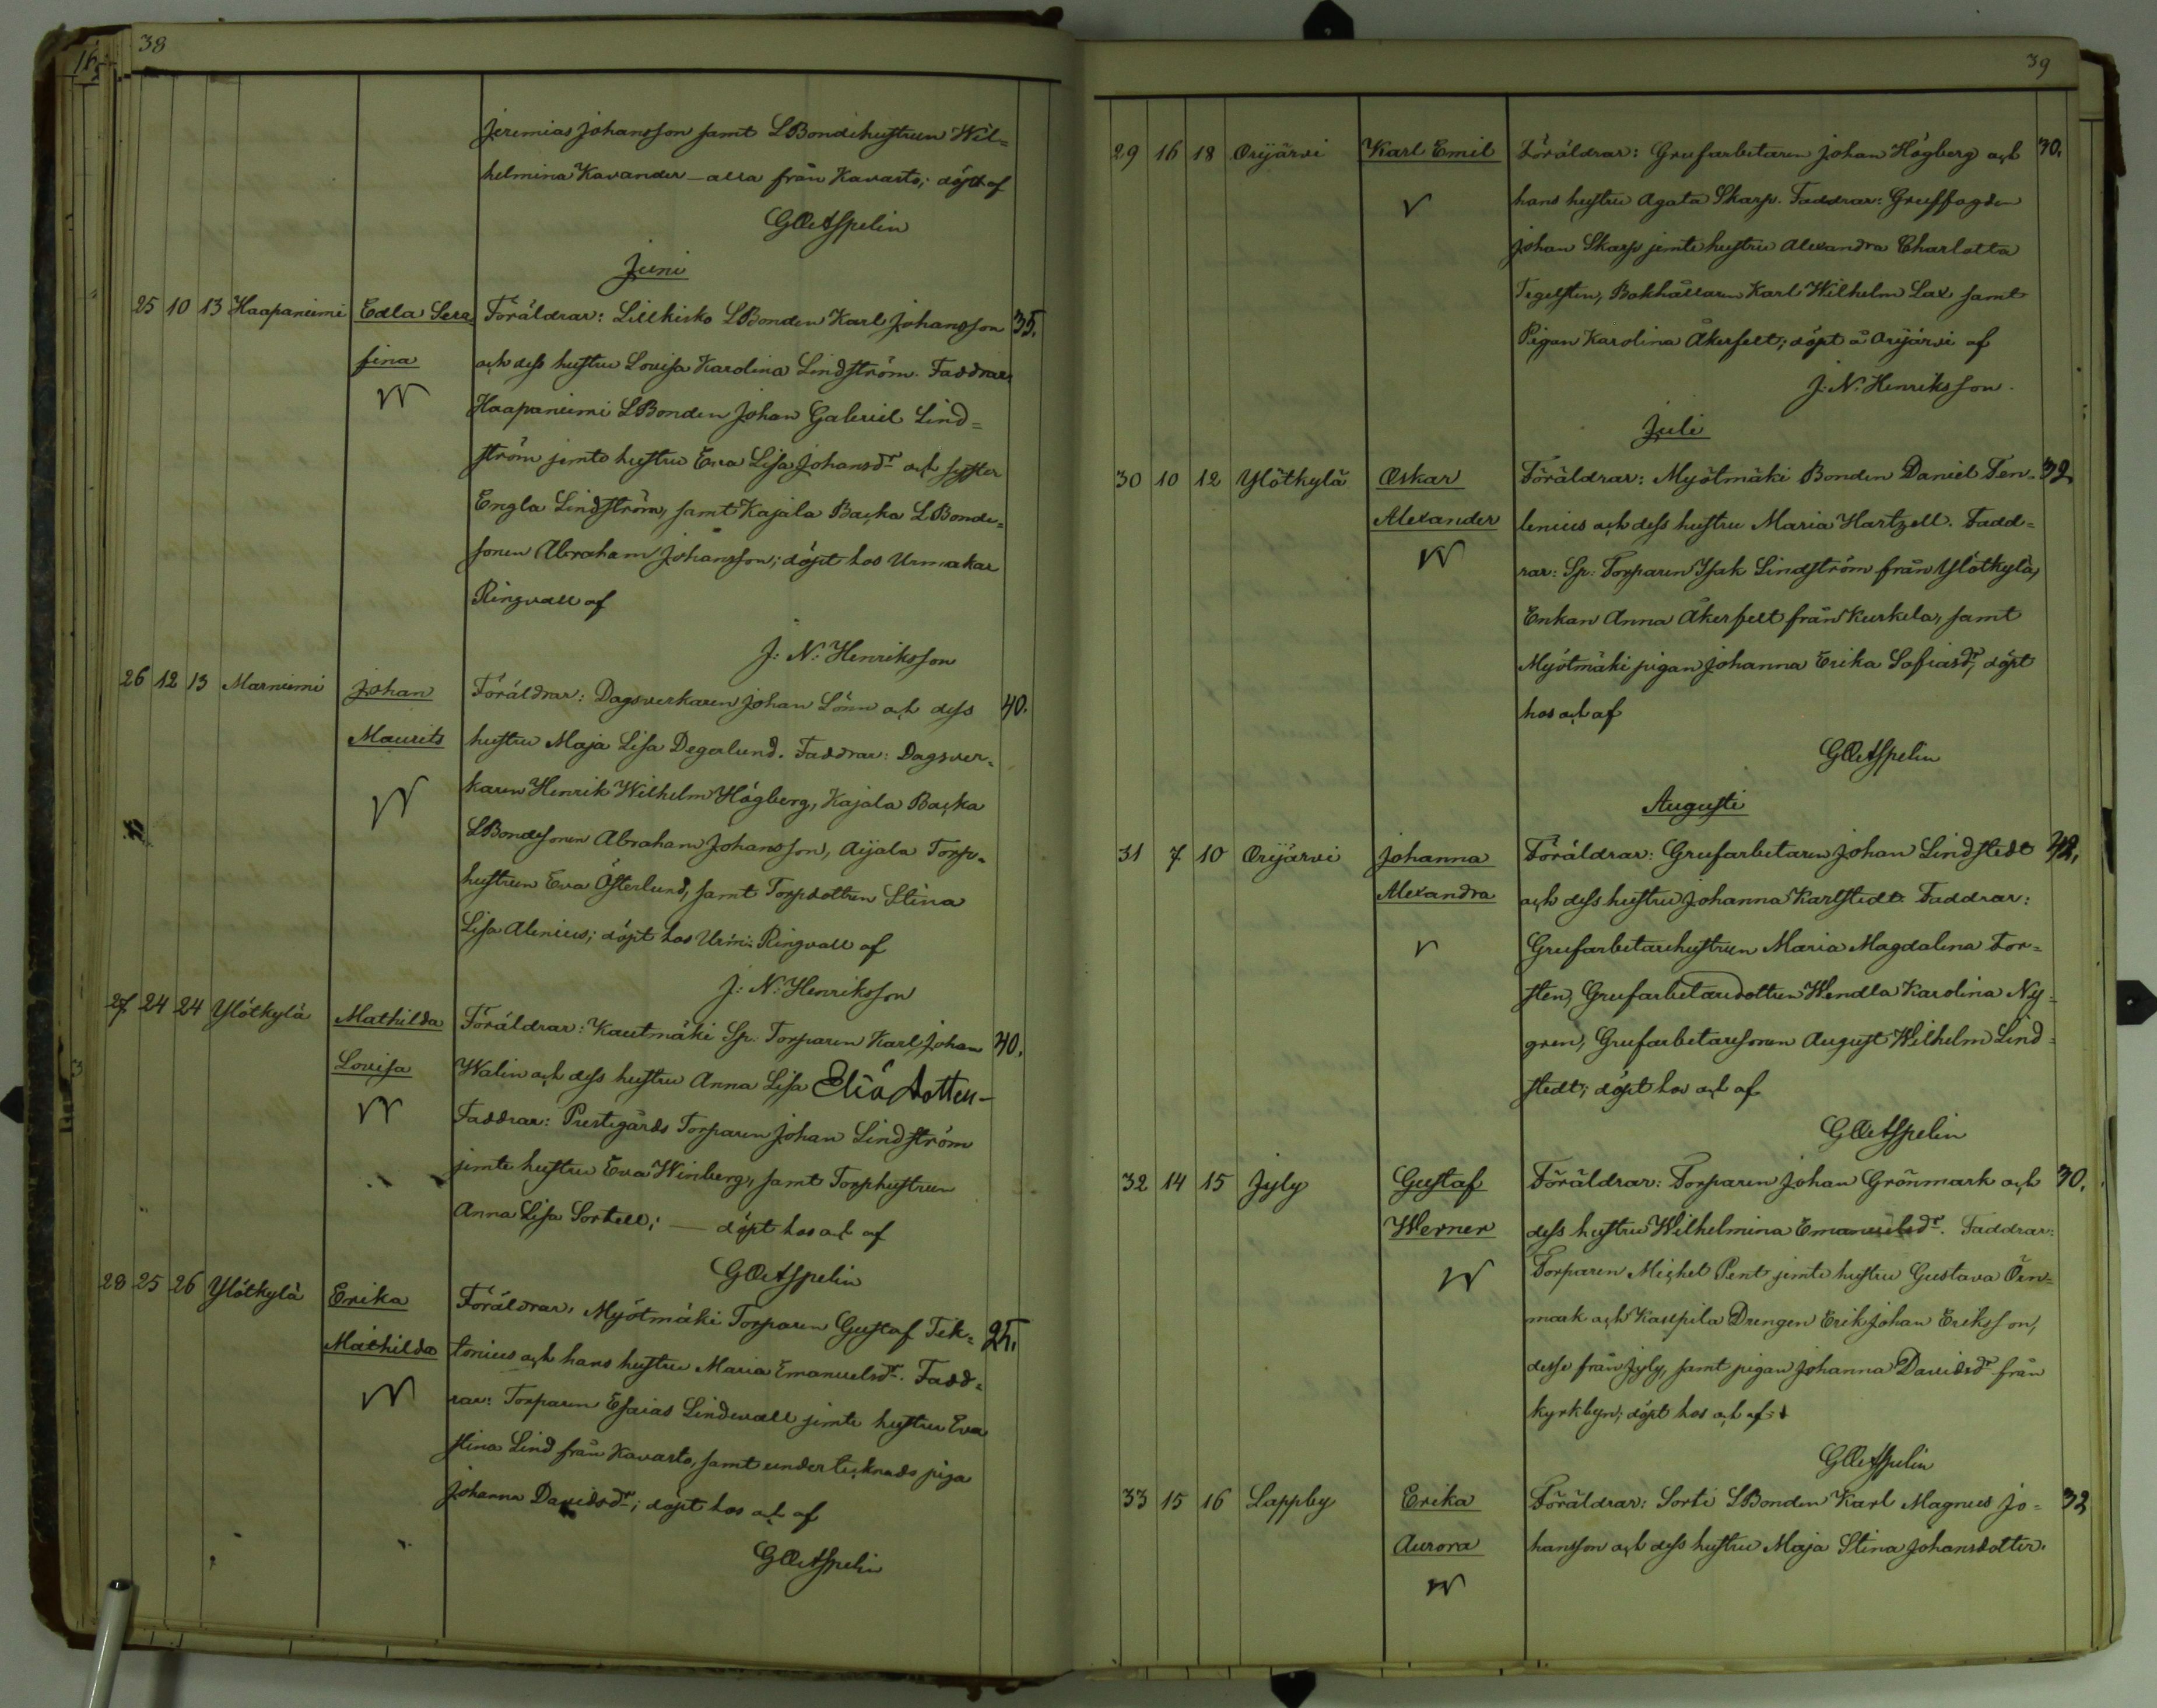 16
38
Jeremias Johansson samt LBondehustrun Wil=
helmina Kavander – alla från Kavasto; döpt af
Juni
25 10 13 Haapaniemi Edla Sera Föräldrar: Lillkisko LBonden Karl Johansson 35.
fina och dess hustru Lovisa Karolina Lindström. Faddrar:
Haapaniemi LBonden Johan Gabriel Lind=
ström jemte hustru Eva Lisa Johansdr och syster
Engla Lindström, samt Kajala Backa LBonde=
sonen Abraham Johansson; döpt hos Urmakar
Ringvall af
J: N: Henriksson
26 12 13 Marniemi Johan Föräldrar: Dagsverkaren Johan Lönn och dess 40.
Maurits hustru Maja Lisa Degerlund. Faddrar: Dagsver=
karen Henrik Wilhelm Högberg, Kajala Backa
LBondesonen Abraham Johansson, Aijala Torp=
hustrun Eva Österlund, samt Torpdottren Stina
Lisa Alenius; döpt hos Urm: Ringvall af
J: N: Henriksson
27 24 24 Ylötkylä Mathilda Föräldrar: Kautmäki Sp: Torparen Karl Johan 40.
Lovisa Walin och dess hustru Anna Lisa Eliædotter –
Faddrar: Prestgårds Torparen Johan Lindström
jemte hustru Eva Winberg, samt Torphustrun
Anna Lisa Sortell; — döpt hos och af
28 25 26 Ylötkylä Erika Föräldrar: Myötmäki Torparen Gustaf Tek= 25.
Mathilda tonius och hans hustru Maria Emanuelsdr. Fadd=
rar: Torparen Esaias Lindevall jemte hustru Eva
Stina Lind från Kavasto, samt undertecknads piga
Johanna Davidsdr; döpt hos och af
39
29 16 18 Orijärvi Karl Emil Föräldrar: Grufarbetaren Johan Högberg och 30.
hans hustru Agata Skarp. Faddrar: Gruffogden
Johan Skarp jemte hustru Alexandra Charlotta
Tegelsten, Bokhållaren Karl Wilhelm Lax samt
Pigan Karolina Åkerfelt; döpt å Orijärvi af
J: N: Henriksson.
Juli
30 10 12 Ylötkylä Oskar Föräldrar: Myötmäki Bonden Daniel Fen= 32
Alexander lenius och dess hustru Maria Hartzell. Fadd=
rar: Sp: Torparen Isak Lindström från Ylötkylä,
Enkan Anna Åkerfelt från Kurkela, samt
Myötmäki pigan Johanna Erika Safiasdr; döpt
hos och af
Augusti
31 7 10 Orijärvi Johanna Föräldrar: Grufarbetaren Johan Lindstedt 42.
Alexandra och dess hustru Johanna Karlstedt. Faddrar:
Grufarbetarehustrun Maria Magdalena Tor=
sten, Grufarbetaredottren Wendla Karolina Ny=
gren, Grufarbetaresonen August Wilhelm Lind=
stedt; döpt hos och af
32 14 15 Jyly Gustaf Föräldrar: Torparen Johan Grönmark och 30.
Werner dess hustru Wilhelmina Emanuelsdr. Faddrar:
Torparen Michel Pent jemte hustru Gustava Öin=
mark och Kaupila Drengen Erik Johan Eriksson,
desse från Jyly, samt pigan Johanna Davidsdr från
kyrkbyn; döpt hos och af
33 15 16 Lappby Erika Föräldrar: Sorti LBonden Karl Magnus Jo= 32
Aurora hansson och dess hustru Maja Stina Johansdotter.